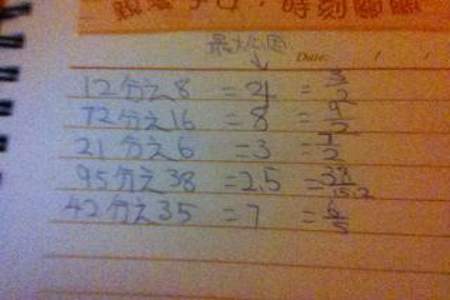 Date:
12分之8 = 4 = 3/2
72分之16 = 8 = 9/2
21分之6 = 3 = 7/2
95分之38 = 2.5 = 38/15.2
42分之35 = 7 = 6/5